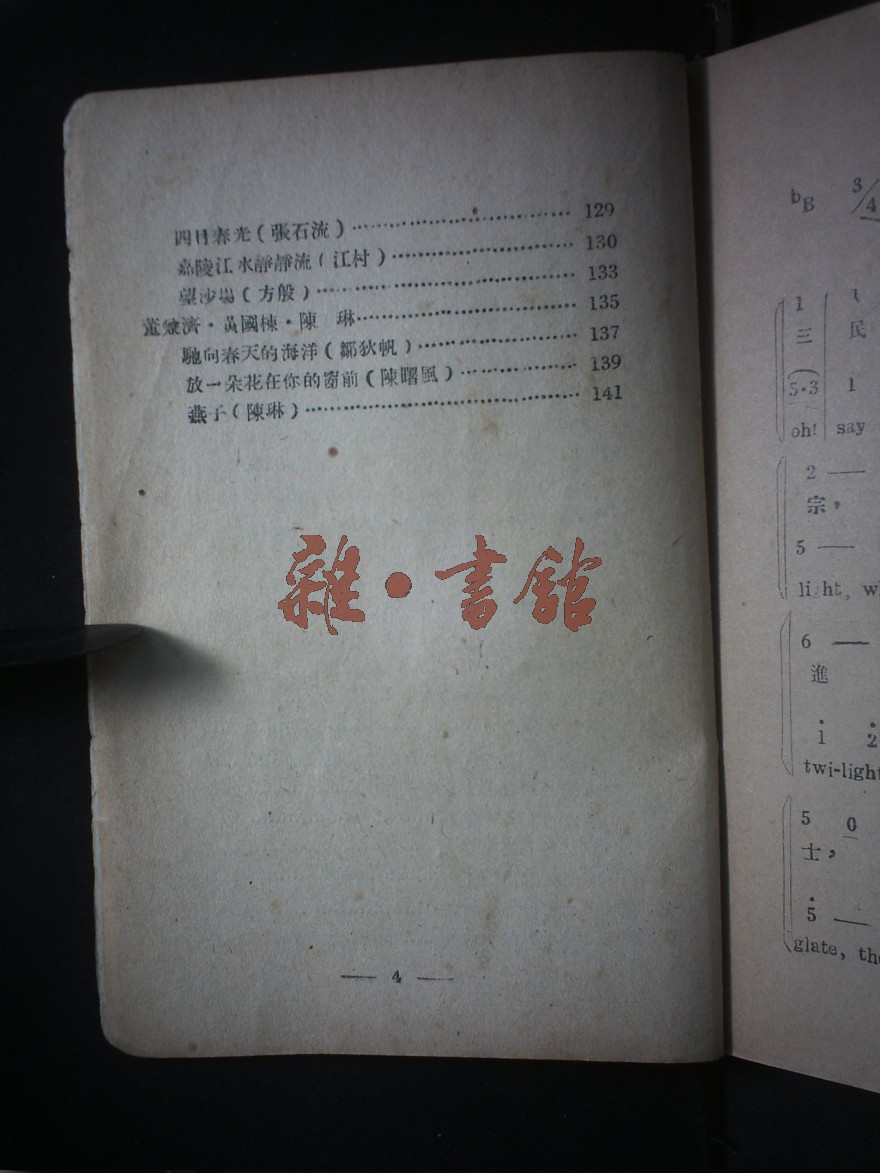 四月春光(張石流)…………………………129
嘉陵江水靜靜流(江村)……………………130
望沙場(方殷)………………………………133
董兼濟·黃國棟·陳　琳……………………135
馳向春天的海洋(鄒狄帆)…………………137
放一朵花在你的窗前(陳曙風)……………139
燕子(陳琳)…………………………………141
雜·書館
— 4 —
bB 3/4
1 1
三 民
5·3 1
oh! say
2 —
宗，
5 —
light,
6 —
進
1 2
twi-light
5 0
士，
5 —